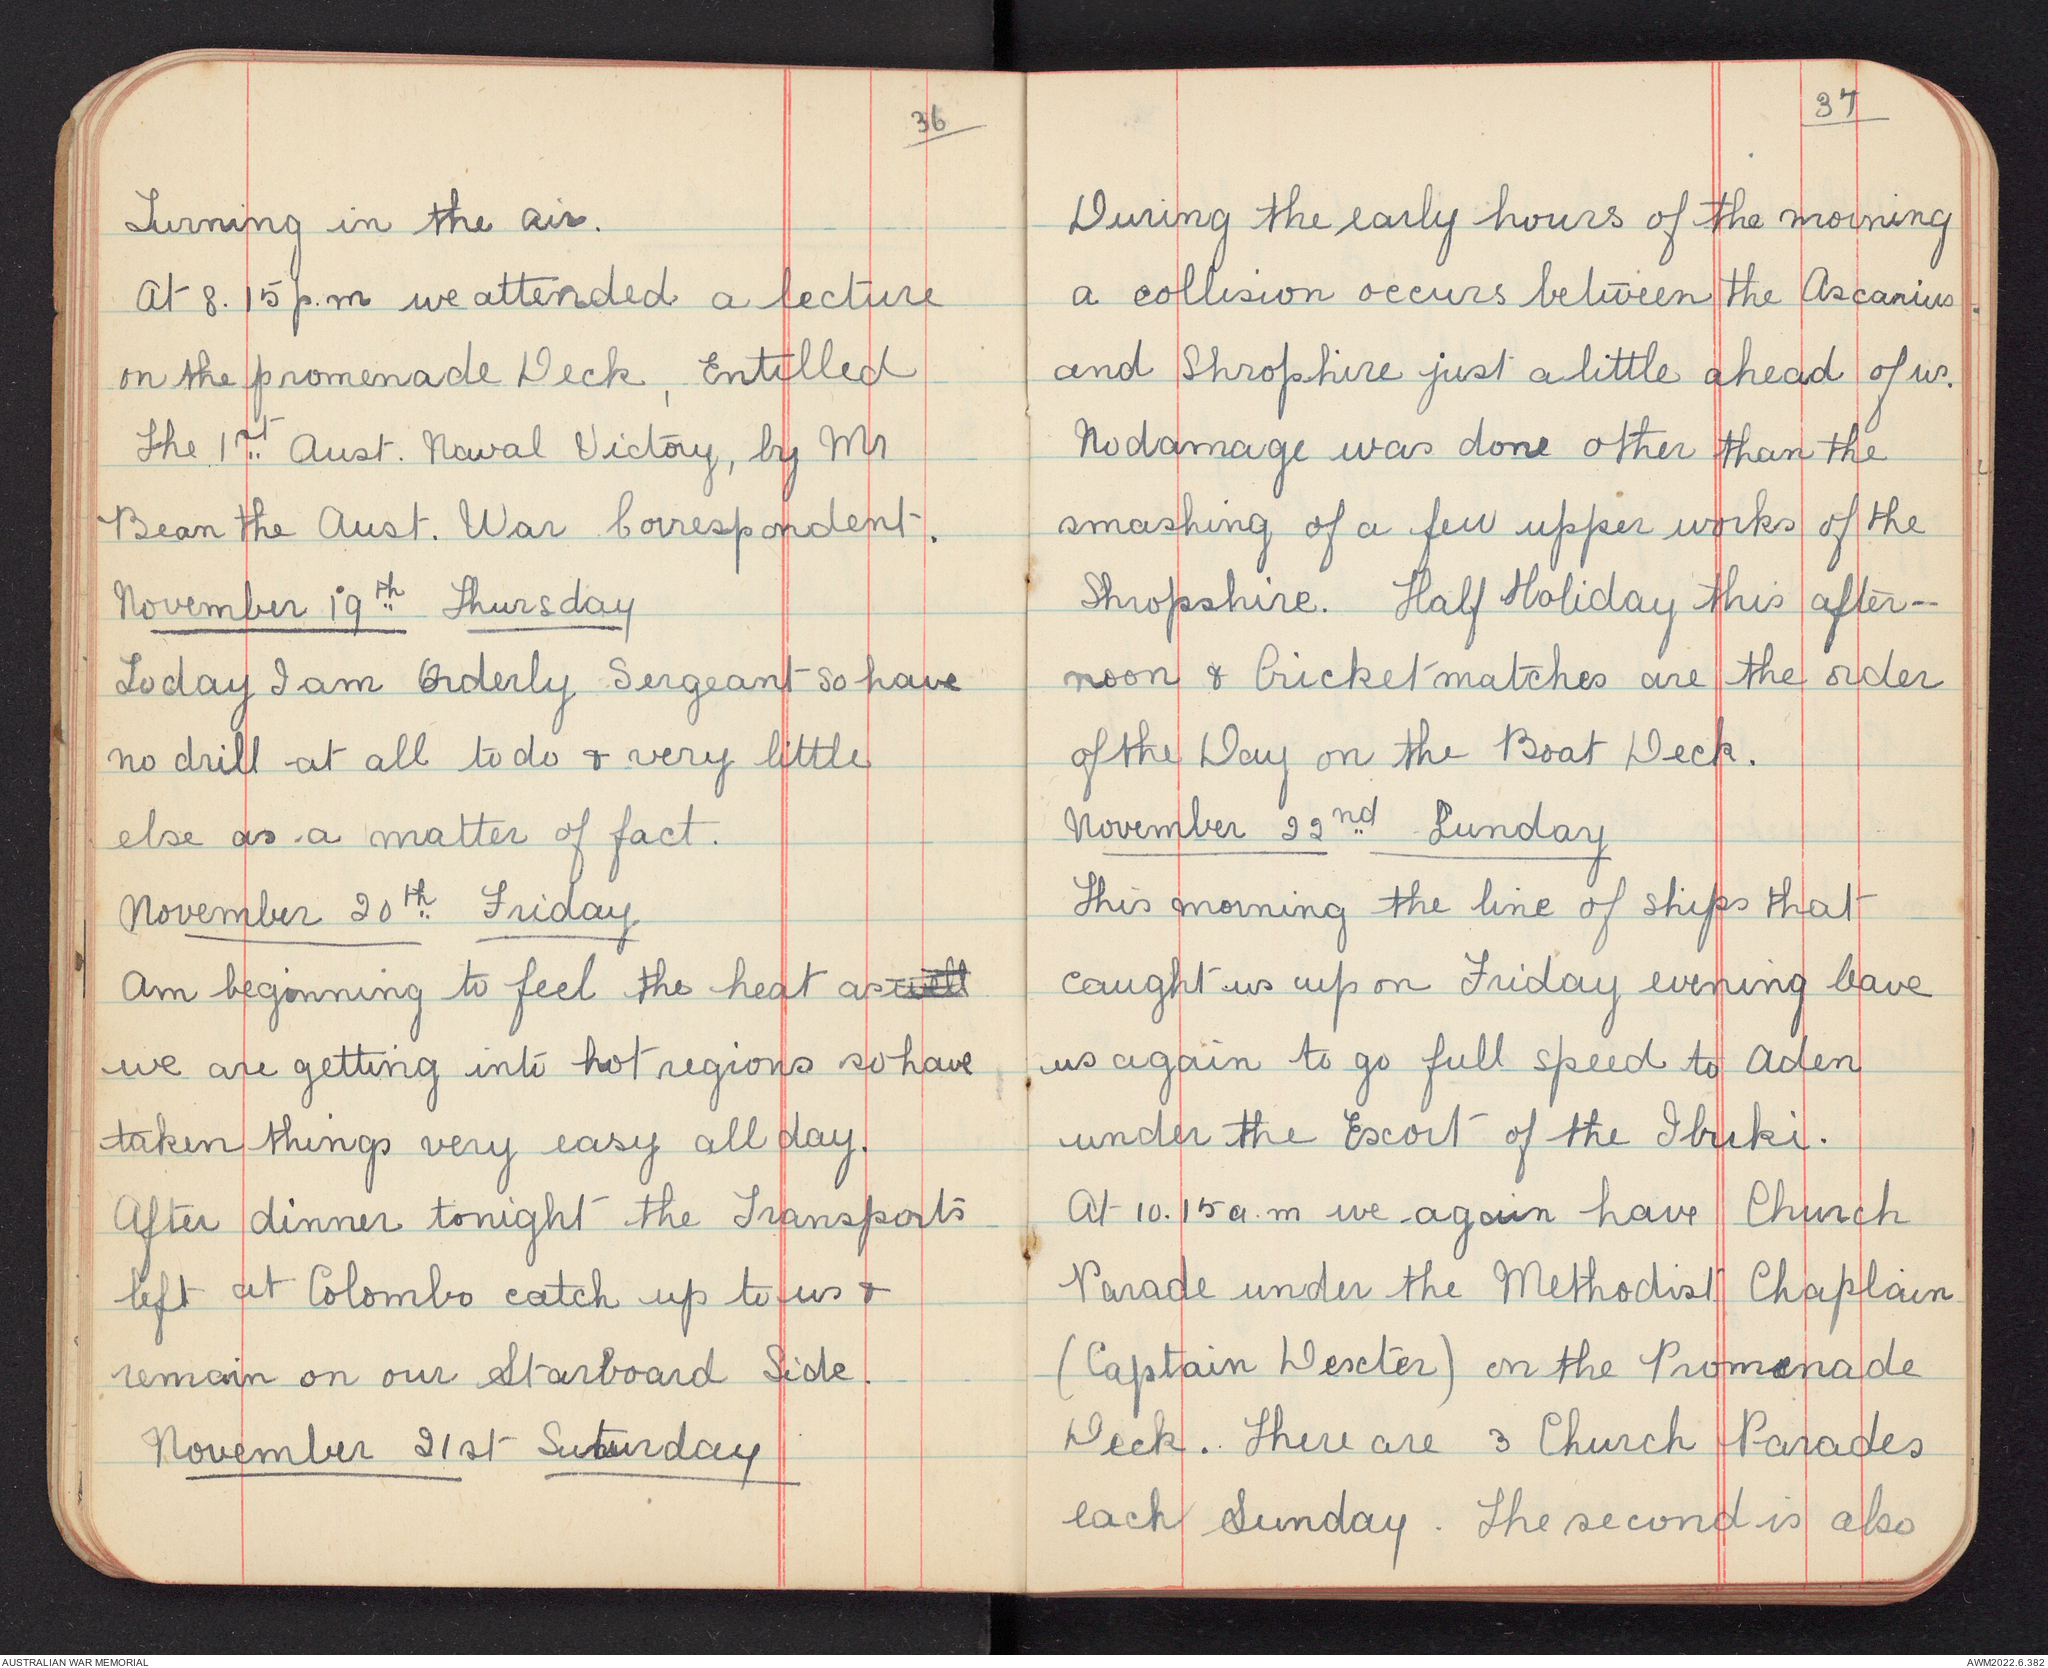 36
Turning in the air.
At 8.15 p.m we attended a lecture
on the promenade Deck, Entilled
The 1st Aust. Naval Victory, by Mr
Bean the Aust. War Correspondent.
November 19th Thursday
Today I am Orderly Sergeant so have
no drill at all to do & very little
else as a matter of fact.
November 20th Friday
Am beginning to feel the heat as well
we are getting into hot regions so have
taken things very easy all day.
After dinner tonight the Transports
left at Colombo catch up to us &
remain on our Starboard Side.
November 21st Saturday
37
During the early hours of the morning
a collision occurs between the Ascanius
and Shrophire just a little ahead of us.
No damage was done other than the
smashing of a few upper works of the
Shropshire. Half Holiday this after-
noon & Cricket matches are the order
of the Day on the Boat Deck.
November 22nd Sunday
This morning the line of ships that
caught us up on Friday evening leave
us again to go full speed to Aden
under the Escort of the Ibuki.
At 10.15 a.m we again have Church
Parade under the Methodist Chaplain
(Captain Dexter) on the Promenade
Deck. There are 3 Church Parades
each Sunday. The second is also
AUSTRALIAN WAR MEMORIAL
AWM2022.6.382